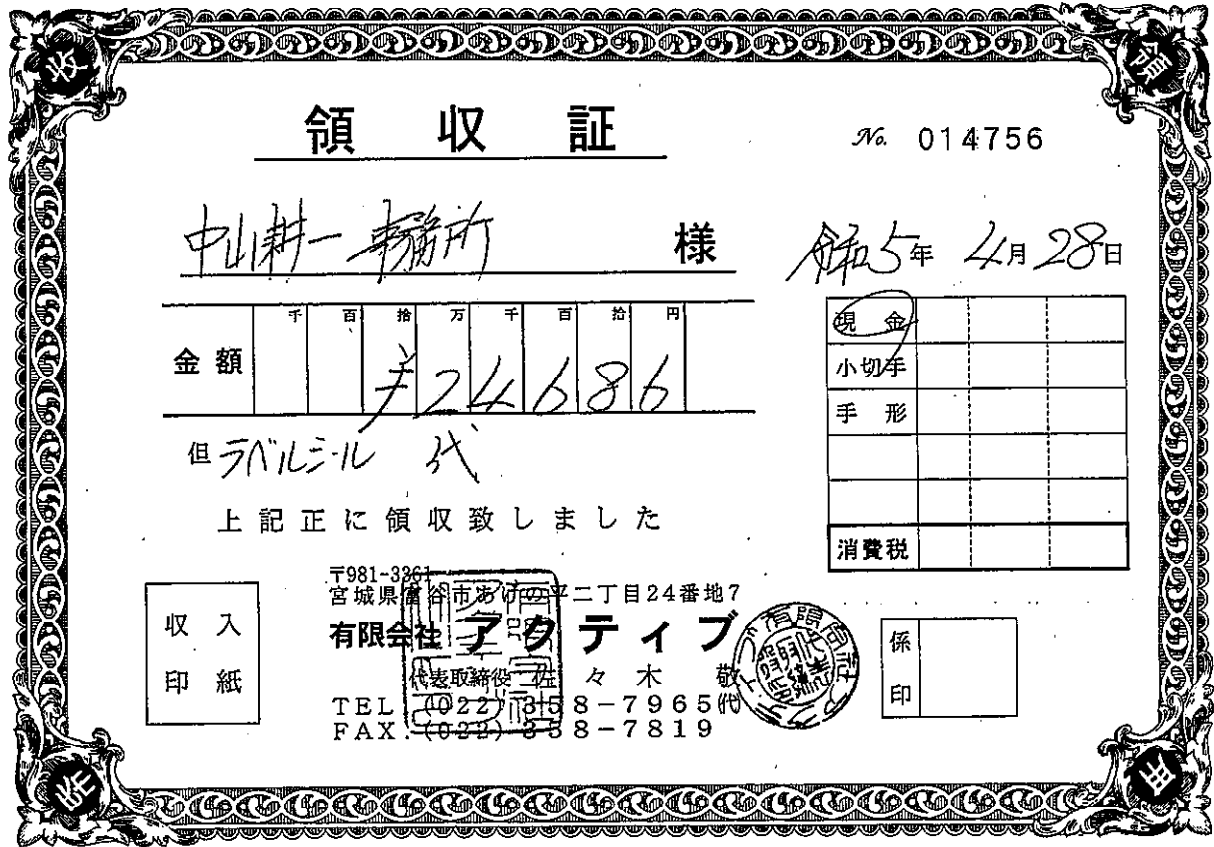 領収証
No. 014756
中山耕一事務所 様
令和5年 4月28日
金額 千 百 拾 万 千 百 拾 円
¥24686
現金
小切手
手形
消費税
但 ラベルシール 代
上記正に領収致しました
収入
印紙
〒981-3361
宮城県富谷市あけの平二丁目24番地7
有限会社 アクティブ
代表取締役 佐々木 敬
TEL.(022)358-7965㈹
FAX.(022)358-7819
係
印